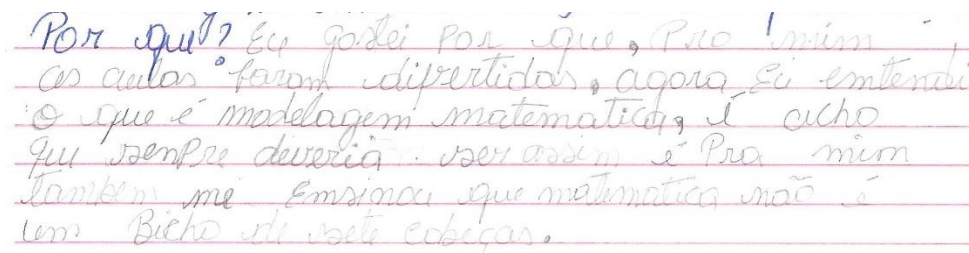 Por que? Eu gostei por que, pro mim
as aulas foram divertidas, agora Eu emtendi
o que é modelagem matematica, é acho
que senpre deveria ser assim é Pra mim
tambem me Emsinou que matematica não é
um Bicho de sete cabeças.